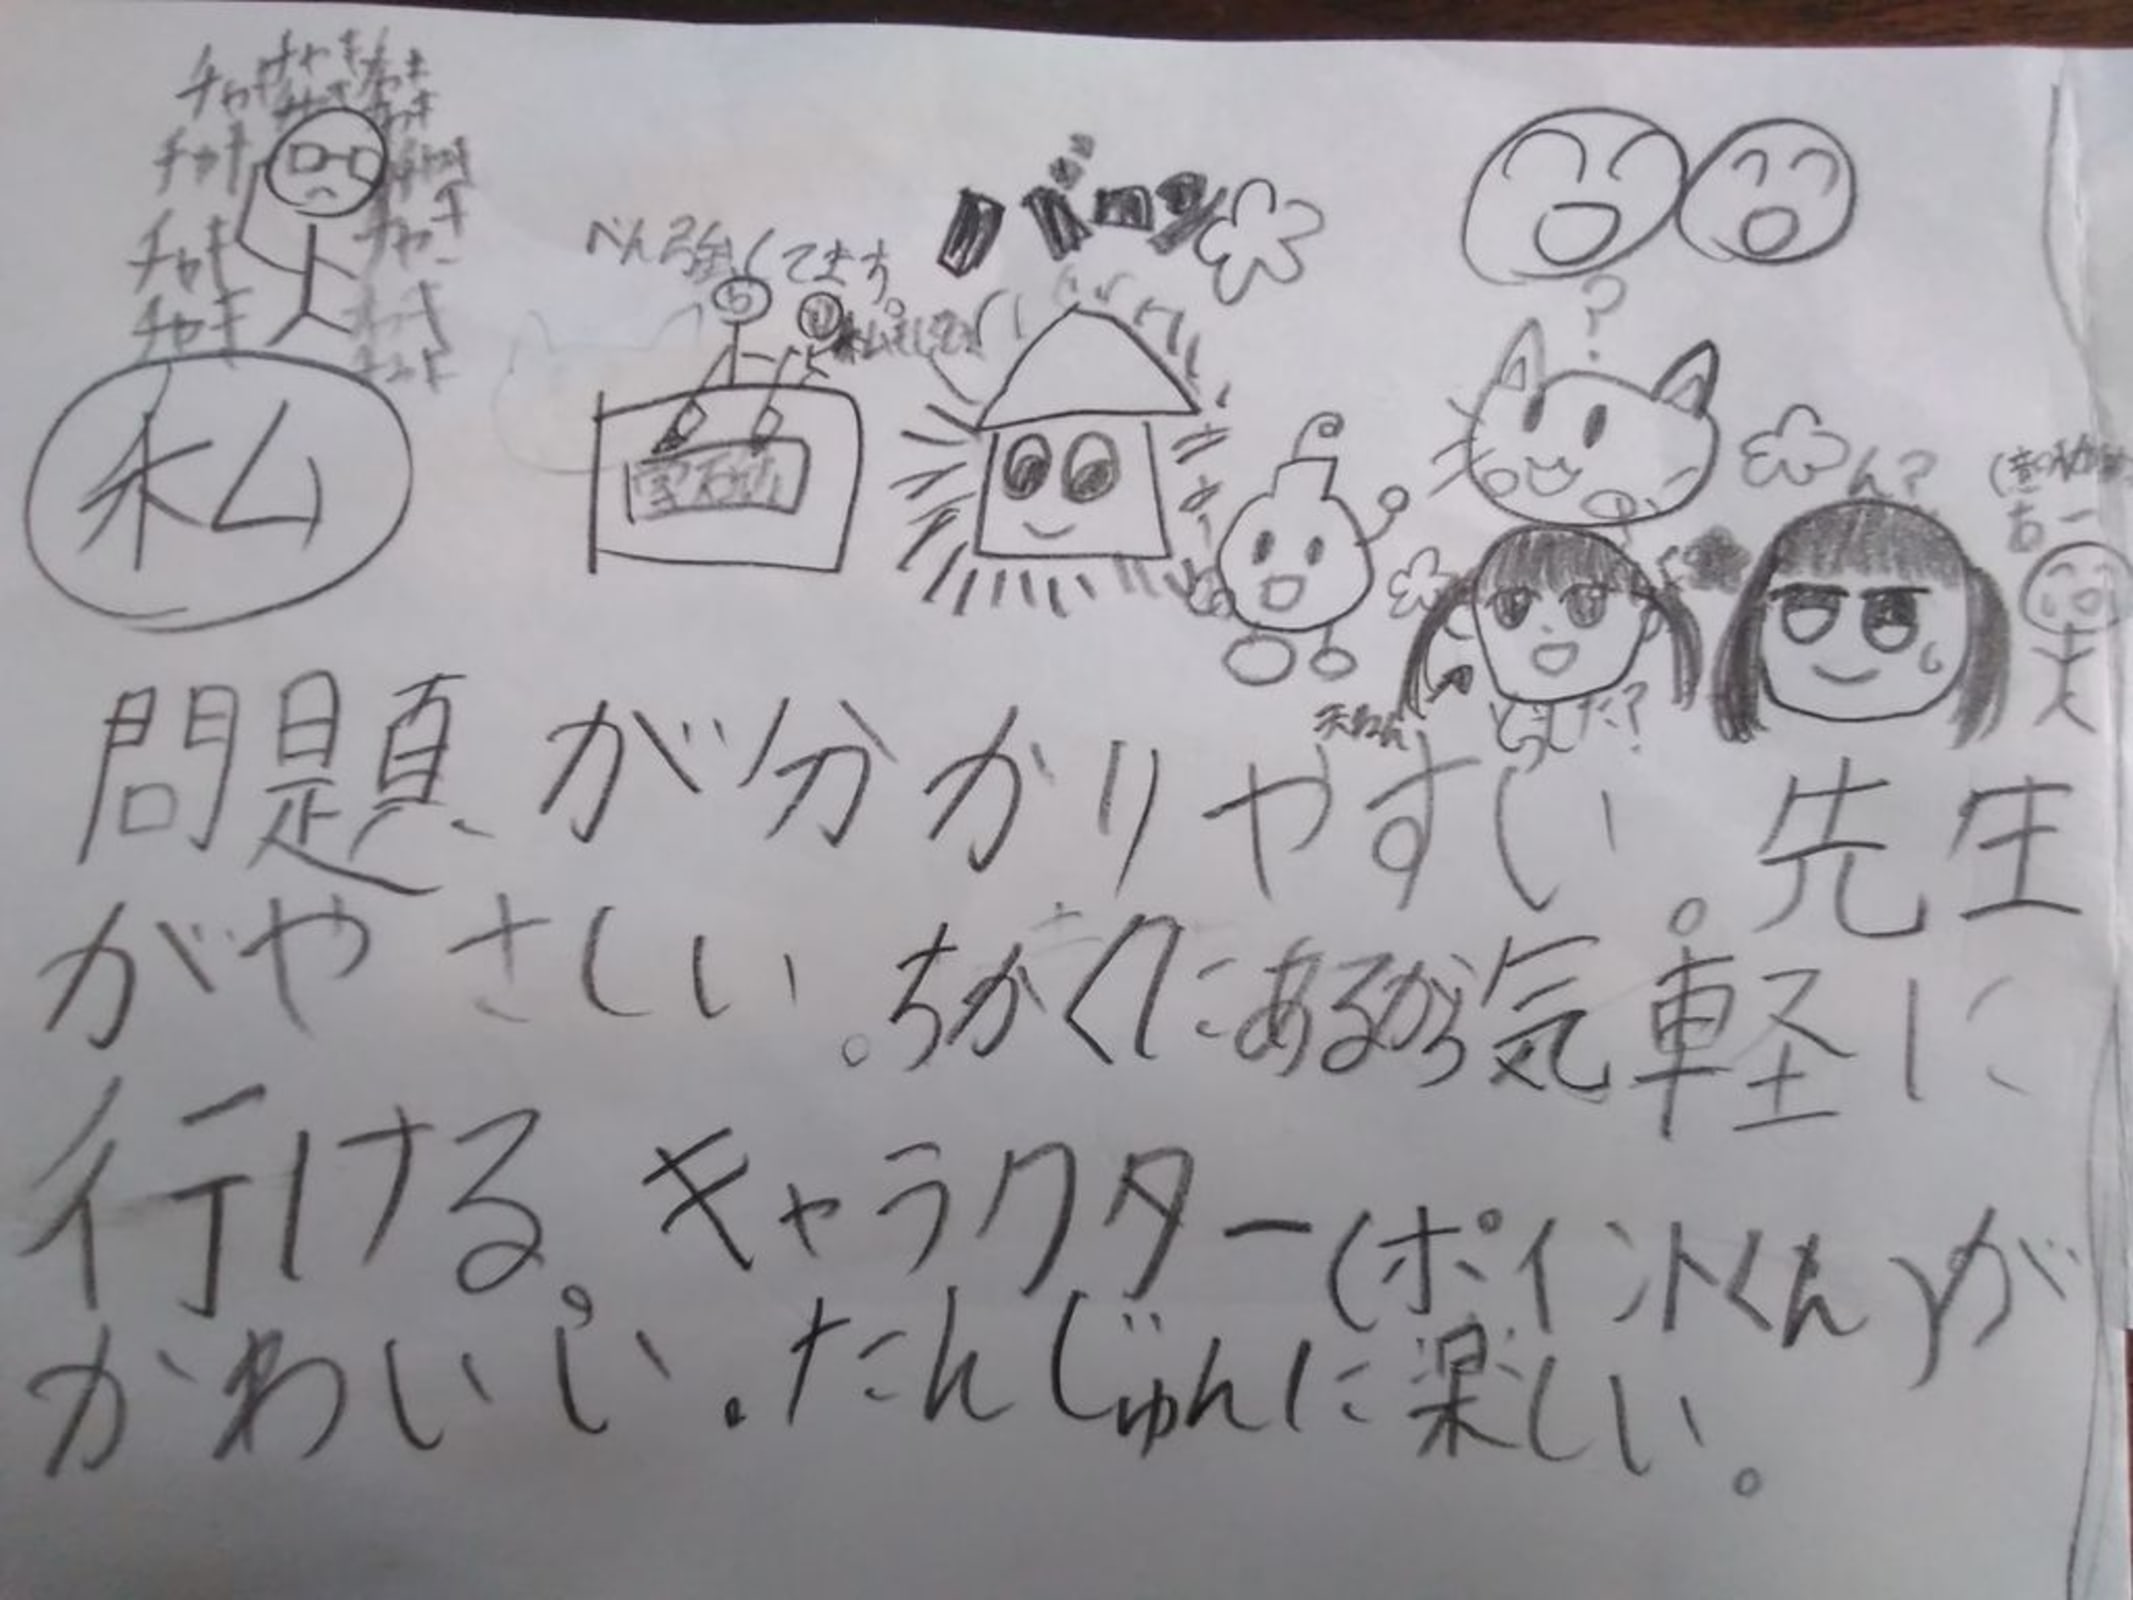 チャキ チャキ チャキ
チャキ
チャキ
チャキ
チャキ
私
べん強してます。
私もしてる
バーン
?
ん?
あー
どうした?
問題が分かりやすい。先生
がやさしい。ちかくにあるから気軽に
行ける。キャラクター(ポイントくん)が
かわいい。たんじゅんに楽しい。